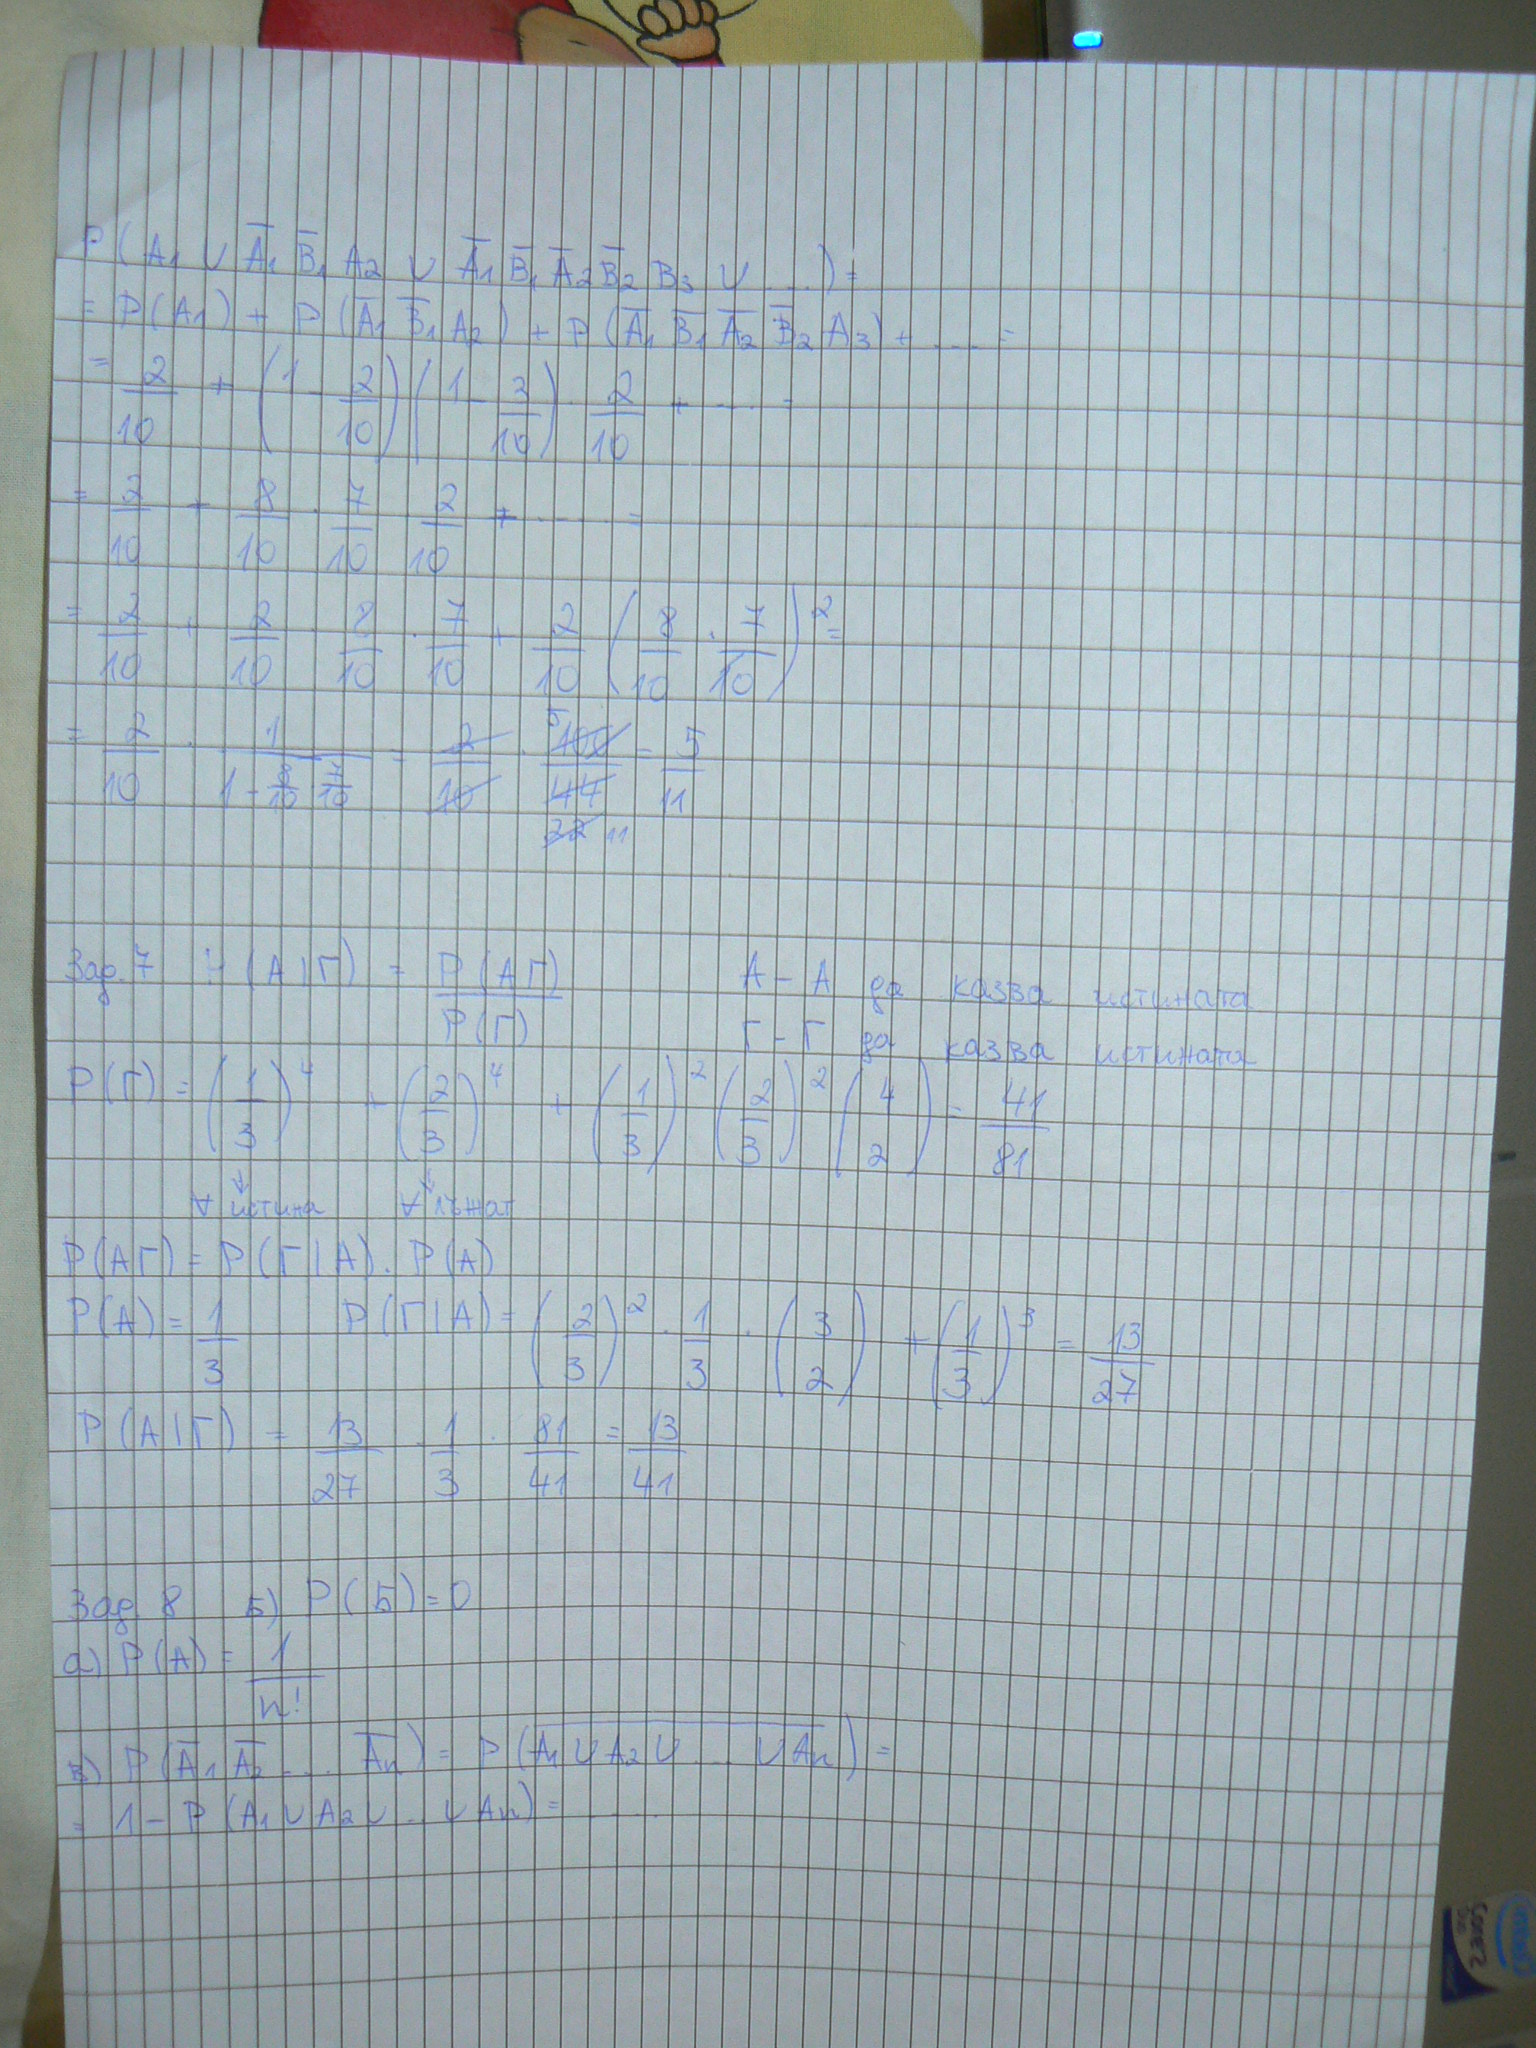 P(A₁ ∪ A̅₁ B̅₁ A₂ ∪ A̅₁ B̅₁ A̅₂ B̅₂ B₃ ∪ ....) =
= P(A₁) + P(A̅₁ B̅₁ A₂) + P(A̅₁ B̅₁ A̅₂ B̅₂ A₃) + .... =
= 2/10 + (1 - 2/10)(1 - 3/10) · 2/10 + .... =
= 2/10 + 8/10 · 7/10 · 2/10 + ..... =
= 2/10 + 2/10 · 8/10 · 7/10 + 2/10 (8/10 · 7/10)² =
= 2/10 · 1/(1 - 8/10 · 7/10) = 2/10 · 5 100/44 22 11 = 5/11
Зад. 7 P(А|Г) = P(АГ)/P(Г) А - А да казва истината
Г - Г да казва истината
P(Г) = (1/3)⁴ + (2/3)⁴ + (1/3)² (2/3)² (4 2) = 41/81
↓ ↓
∀ истина ∀ лъжат
P(АГ) = P(Г|А) . P(А)
P(А) = 1/3 P(Г|А) = (2/3)² · 1/3 · (3 2) + (1/3)³ = 13/27
P(А|Г) = 13/27 · 1/3 · 81/41 = 13/41
Зад. 8 Б) P(Б) = 0
а) P(А) = 1/n!
в) P(A̅₁ A̅₂ .... A̅n) = P(A₁ ∪ A₂ ∪ .... ∪ An)‾ =
= 1 - P(A₁ ∪ A₂ ∪ .. ∪ An) = .....
intel
Core 2
Duo